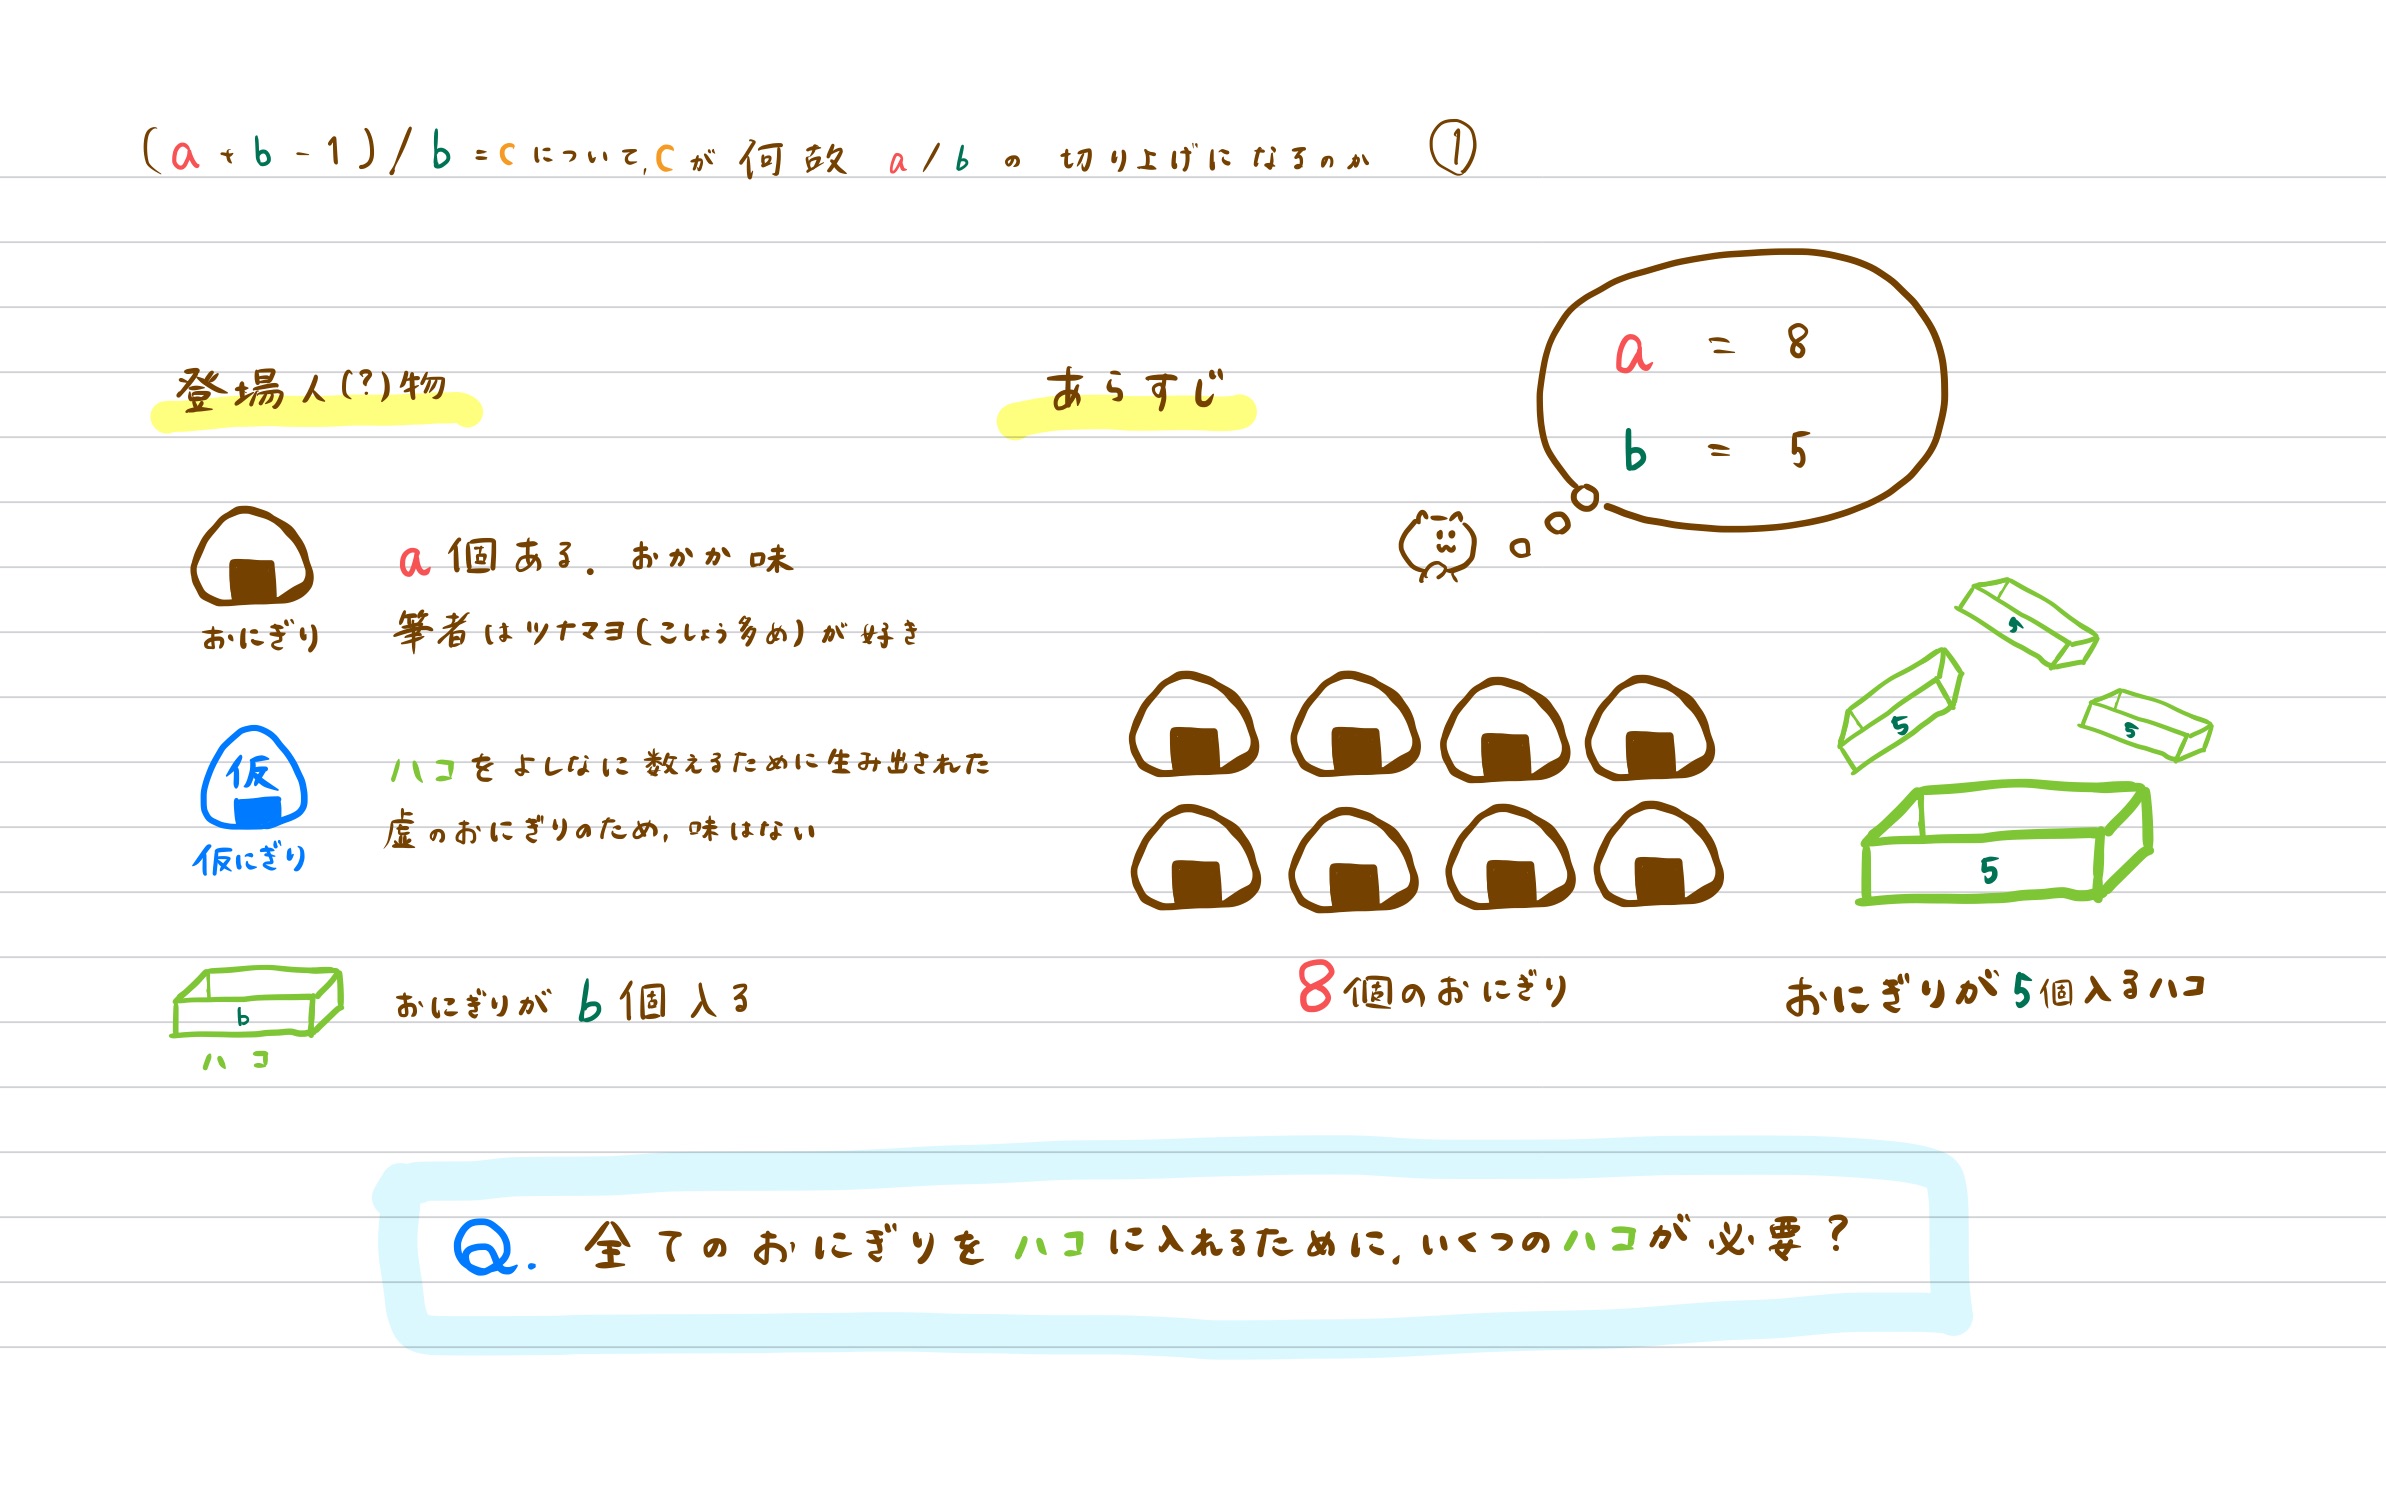 (a+b-1)/b=cについて,cが何故 a/bの切り上げになるのか ①
登場人(?)物
おにぎり
a個ある. おかか味
筆者はツナマヨ(こしょう多め)が好き
仮
仮にぎり
ハコをよしなに数えるために生み出された
虚のおにぎりのため,味はない
b
ハコ
おにぎりがb個入る
あらすじ
a = 8
b = 5
5
5
5
5
8個のおにぎり
おにぎりが5個入るハコ
Q. 全てのおにぎりをハコに入れるために,いくつのハコが必要?